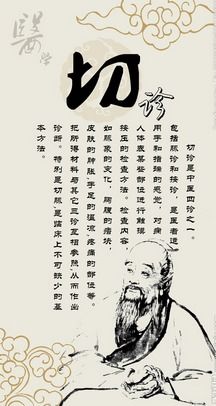 醫
切
诊
切诊是中医四诊之一。
包括脉诊和按诊，是医者运
用手和指端的感觉，对病
人体表某些部位进行触摸
按压的检查方法。检查内容
如脉象的变化，胸腹的痞块，
皮肤的肿胀，手足的温凉，疼痛的部位等。
把所得材料与其它三诊互相参照，从而作出
诊断。特别是切脉是临床上不可缺少的基
本方法。